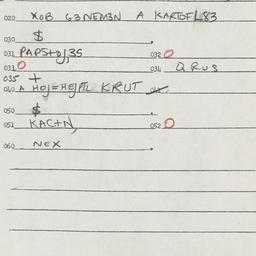 020 XOB G3NEM3N A KARTOFL83
030 $ .
031 PAPS+OJ,3S 032 O
033 O 034 QRUS
035 +
040 A HOJ=HEJPTL KRUT
050 $ .
051 KAC+N, 052 O
060 NEX .